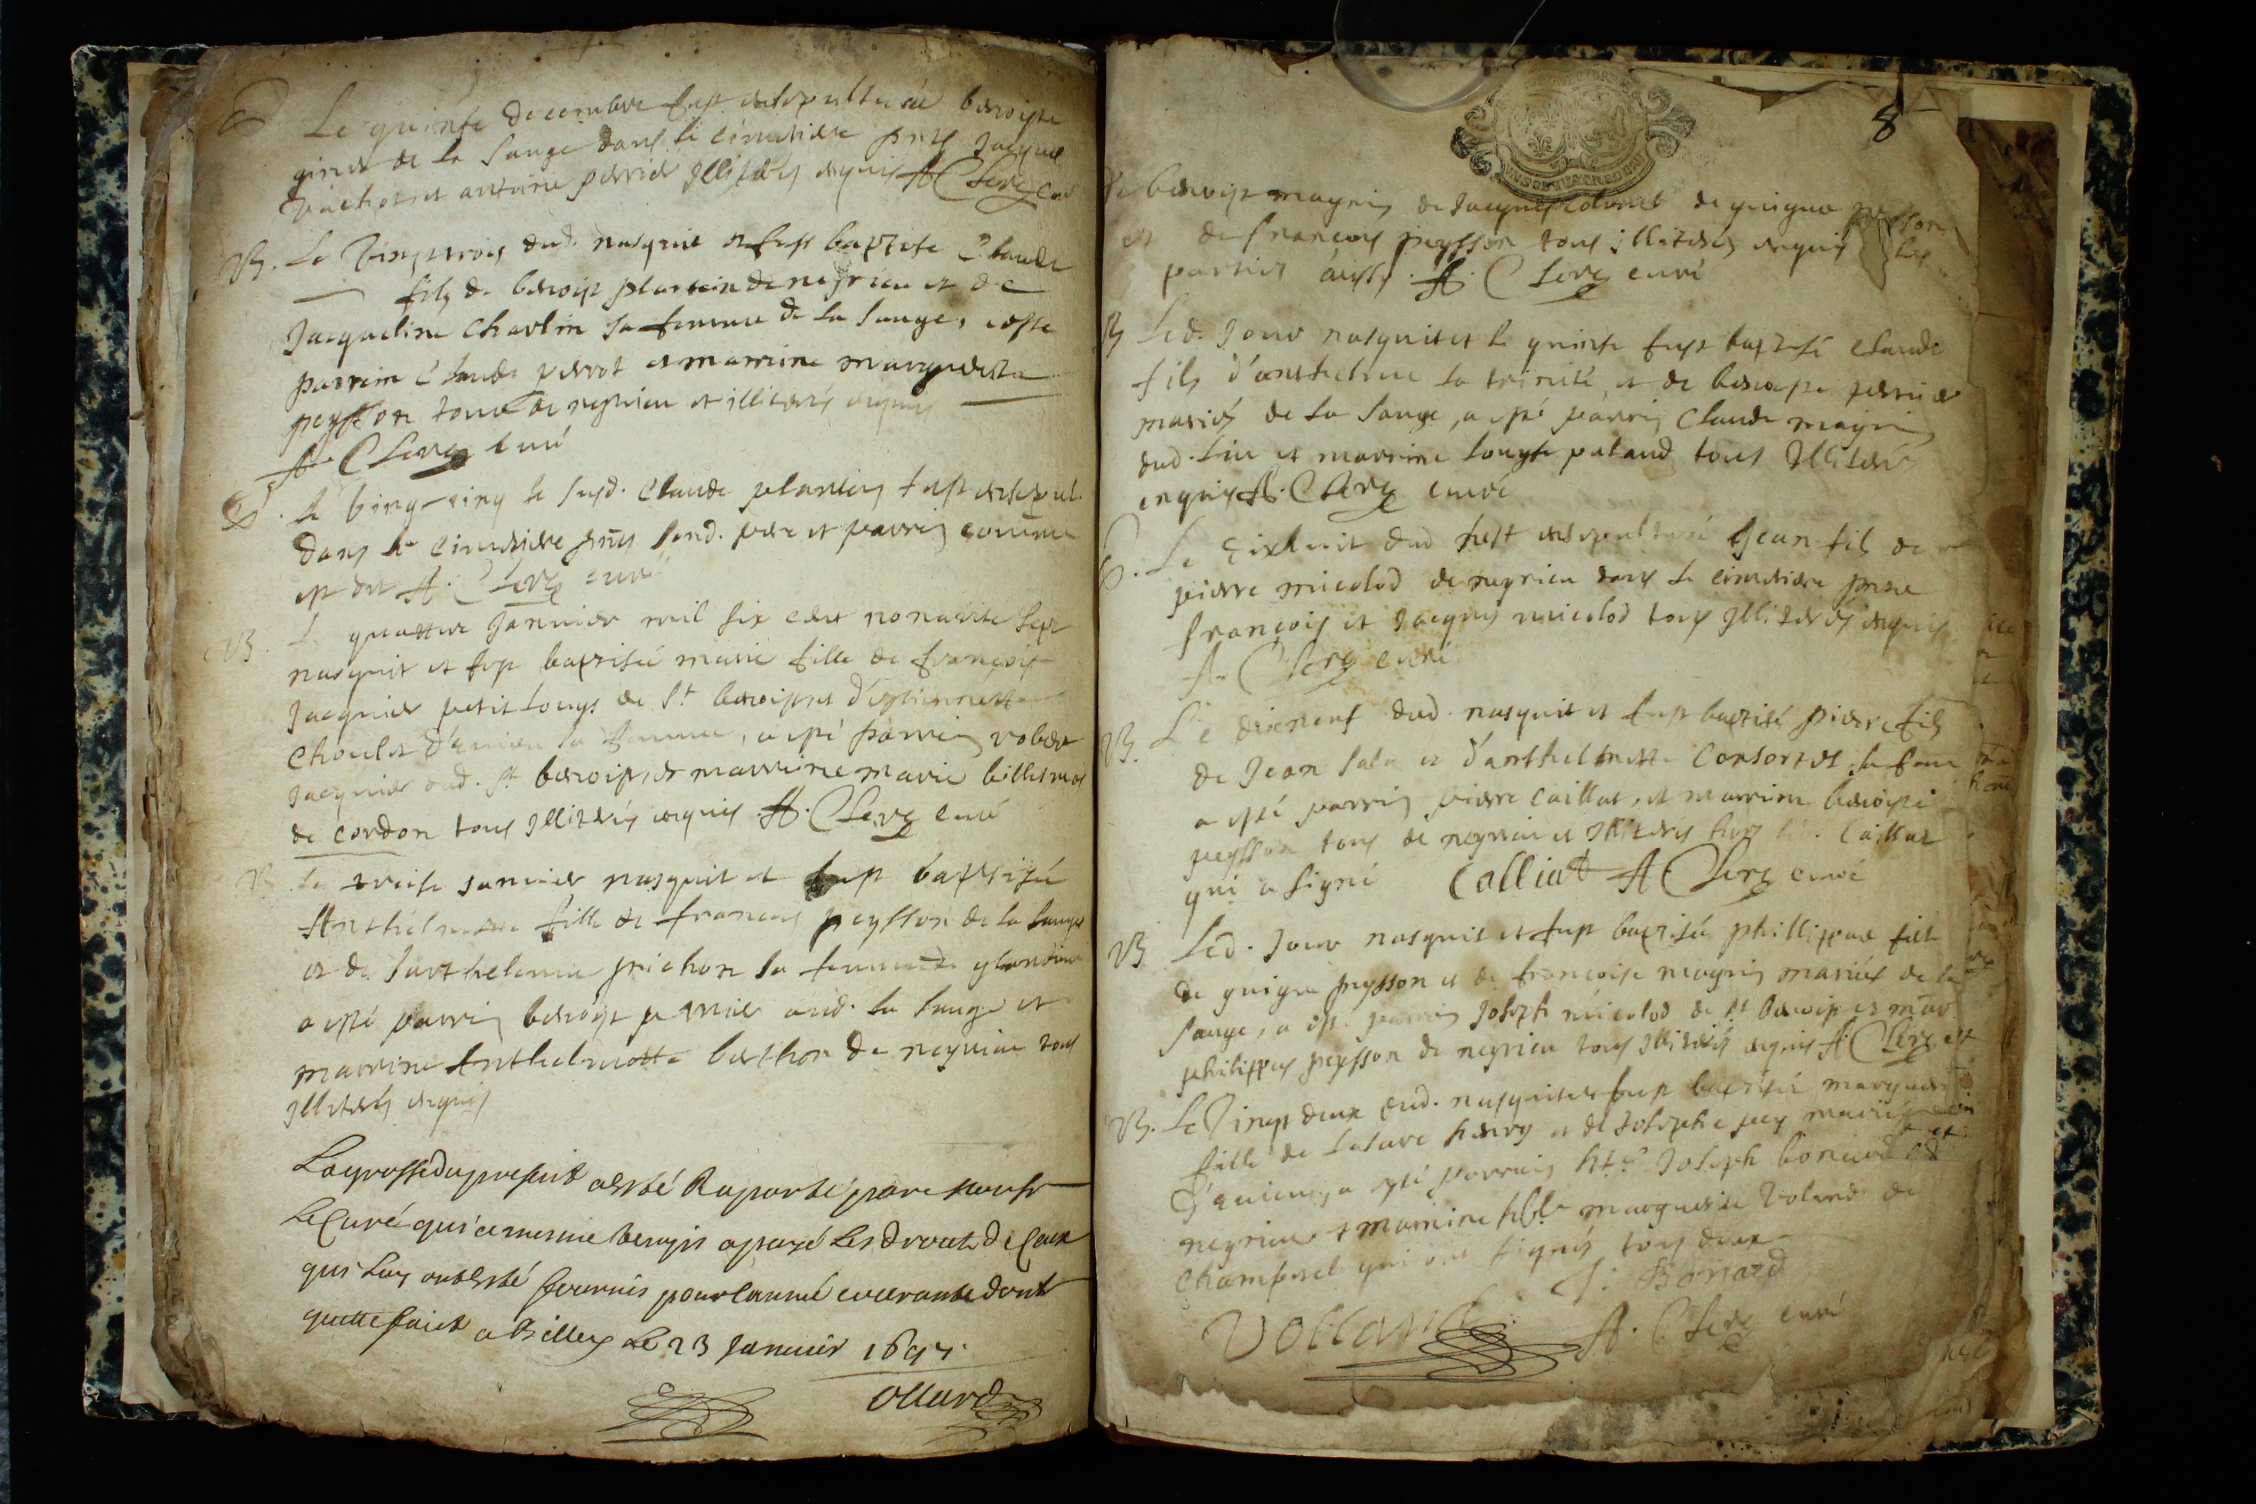 Le quinse decembre fust ensepulturée benoiste
giner de la sauge dans le cimetiere pnts Jacque
vachot et antoine perrier illiterés enquis A Clerc curé
B. Le vingt trois dud. nasquit et fust baptisé Claude
fils de benoist plantin de neyrieu et de
Jacqueline Charlin sa femme de la sauge, a esté
parrin Claude perrot et marrine marguerite
peysson tous de neyrieu et illiterés enquis
A. Clerc curé
S. Le vingt cinq le susd. Claude plantin fust ensepul.
dans le cimetiere pnts sond. pere et parrin comme
est dit A. Clerc curé
B. Le quattre Janvier mil six cent nonante sept
nasquit et fust baptisée marie fille de françois
Jacquier petit Louys de St benoist et d'estiennette
Choulet d'evieu sa femme, a esté parrin robert
Jacquier dud. St benoist et marrine marie billiemas
de cordon tous illiterés enquis A. Clerc curé
B Le treise Janvier nasquit et fust baptisée
Anthelmette fille de francois peysson de la sauge
et de Parthelemie pichon sa femme de glandieu
a esté parrin benoist perrier aud. la sauge et
marrine Anthelmette berthon de neyrieu tous
illiterés enquis
La grosse du present a esté Raporté pare sieur
Le Curé qui a mesme temps a payé Les droicts de Ceux
qui Luy ont esté fournis pour l'année courante dont
quitte faict a Belley Le 23 Janvier 1697
Ollard
8
de benoist magnin de Jacques de guigue peysson
et de francois peysson tous illiterés enquis les
parties aussy. A. Clerc curé
B Led. Jour nasquit et le quinse fust baptisé Claude
fils d'anthelme la trinité et de benoiste perrier
mariés de la sauge, a esté parrin Claude magnin
dud. lieu et marrine Louyse paland tous illiterés
enquis A. Clerc curé
S. Le dixhuit dud fust ensepulturé Jean fils de
pierre micolod de neyrieu dans le cimetiere pnts
françois et Jacques micolod tous illiterés enquis
A. Clerc curé
B. Le dixneuf dud. nasquit et fust baptisé pierre fils
de Jean sala et d'anthelmette Consortet sa fem
a esté parrin pierre Caillat, et marrine benoiste
peysson tous de neyrieu et illiterés hors led. Caillat
qui a signé Calliat A Clerc curé
B Led. Jour nasquit et fust baptisée phillippe fille
de guigue peysson et de francoise magnin mariés de la
sauge, a esté parrin Joseph micolod de St benoist et mar
philippe peysson de neyrieu tous illiterés enquis A. Clerc
B. Le vingt deux dud. nasquit et fust baptisée marguerite
fille de Lasare henry et de Josephe pey mariés
d'evieu, a esté parrain Joseph bonard de
neyrieu et marrine marguerite Volland de
Champuel qui ont signés tous deux
J. Bonard
Vollarid A. Clerc curé